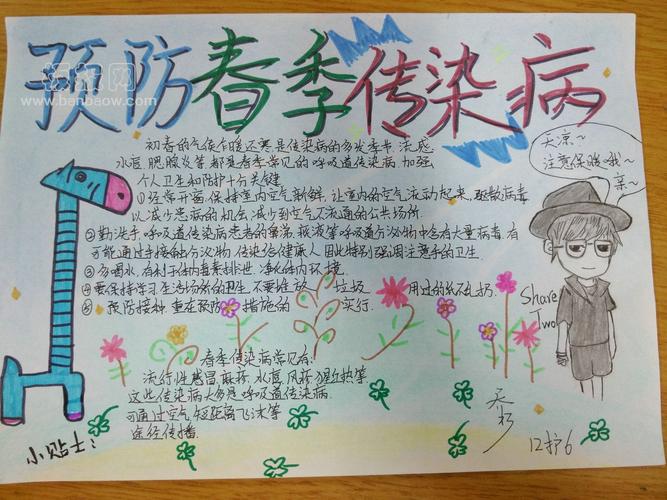 预防春季传染病
www.banbaow.com
初春的气候乍暖还寒是传染病的多发季节,流感
水痘 腮腺炎等都是春季常见的呼吸道传染病 加强
个人卫生和防护十分关键
①经常开窗,保持室内空气新鲜,让室内的空气流动起来,驱散病毒
以减少患病的机会,减少到空气不流通的公共场所
②勤洗手,呼吸道传染病患者的鼻涕,痰液等呼吸道分泌物中含有大量病毒,有
可能通过手接触分泌物 传染给健康人 因此特别强调注意手的卫生
③多喝水,有利于体内毒素排泄,净化体内环境
④要保持学习生活场所的卫生,不要堆放 垃圾 用过的纸不乱扔
⑤ 预防接种 重在预防 措施的 实行
春季传染病常见有:
流行性感冒 麻疹 水痘 风疹 猩红热等
这些传染病大多是呼吸道传染病
可通过空气 短距离飞沫等
途径传播
小贴士:
天凉~
注意保暖哦~
亲~
Share
Two
12护6